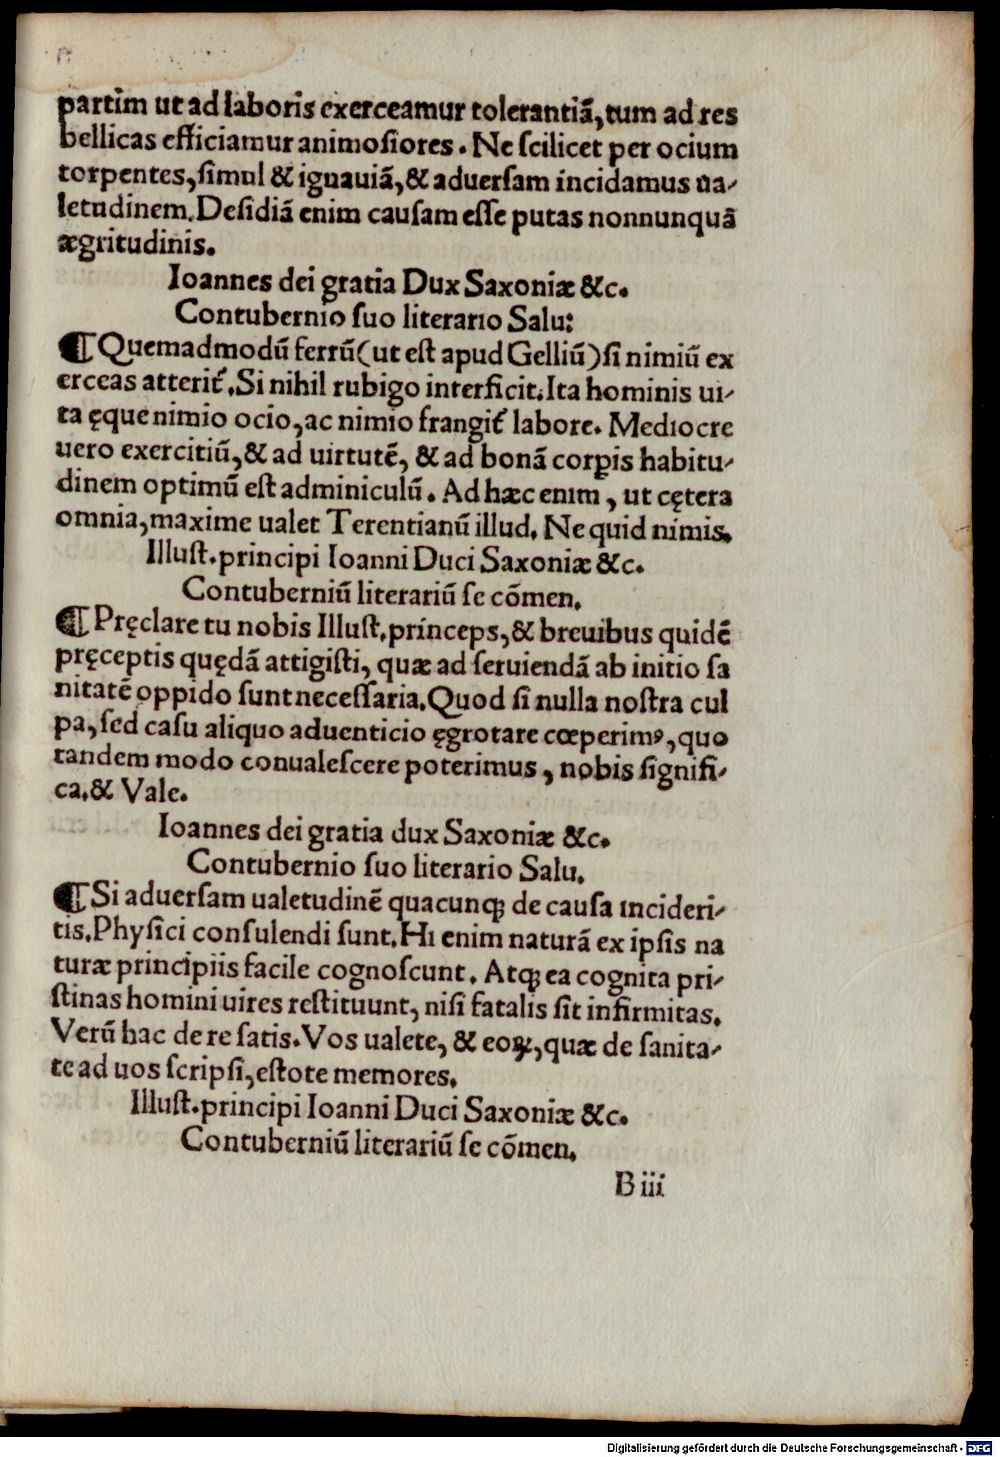 partim ut ad laboris exerceamur tolerantiā, tum ad res
bellicas efficiamur animoſiores. Ne ſcilicet per ocium
torpentes, ſimul & ignauiā, & aduerſam incidamus ua⸗
letudinem. Deſidiā enim cauſam eſſe putas nonnunquā
ægritudinis.
Ioannes dei gratia Dux Saxoniæ &c.
Contubernio ſuo literario Salu:
¶ Quemadmodū ferrū (ut eſt apud Gelliū) ſi nimiū ex
erceas atterit᷒. Si nihil rubigo interficit. Ita hominis ui⸗
ta ęque nimio ocio, ac nimio frangit᷒ labore. Mediocre
uero exercitiū, & ad uirtutē, & ad bonā corꝑis habitu⸗
dinem optimū eſt adminiculū. Ad hæc enim, ut cętera
omnia, maxime ualet Terentianū illud. Ne quid nimis.
Illuſt. principi Ioanni Duci Saxoniæ &c.
Contuberniū literariū ſe cōmen.
¶ Pręclare tu nobis Illuſt. princeps, & breuibus quidē
pręceptis quędā attigiſti, quæ ad ſeruiendā ab initio ſa
nitatē oppido ſunt neceſſaria. Quod ſi nulla noſtra cul
pa, ſed caſu aliquo aduenticio ęgrotare cœperimꝰ, quo
tandem modo conualeſcere poterimus, nobis ſignifi⸗
ca. & Vale.
Ioannes dei gratia dux Saxoniæ &c.
Contubernio ſuo literario Salu.
¶ Si aduerſam ualetudinē quacunqꝫ de cauſa incideri⸗
tis. Phyſici conſulendi ſunt. Hi enim naturā ex ipſis na
turæ principiis facile cognoſcunt. Atqꝫ ea cognita pri⸗
ſtinas homini uires reſtituunt, niſi fatalis ſit infirmitas.
Verū hac de re ſatis. Vos ualete, & eoꝝ, quæ de ſanita⸗
te ad uos ſcripſi, eſtote memores.
Illuſt. principi Ioanni Duci Saxoniæ &c.
Contuberniū literariū ſe cōmen.
B iii
Digitalisierung gefördert durch die Deutsche Forschungsgemeinschaft - DFG